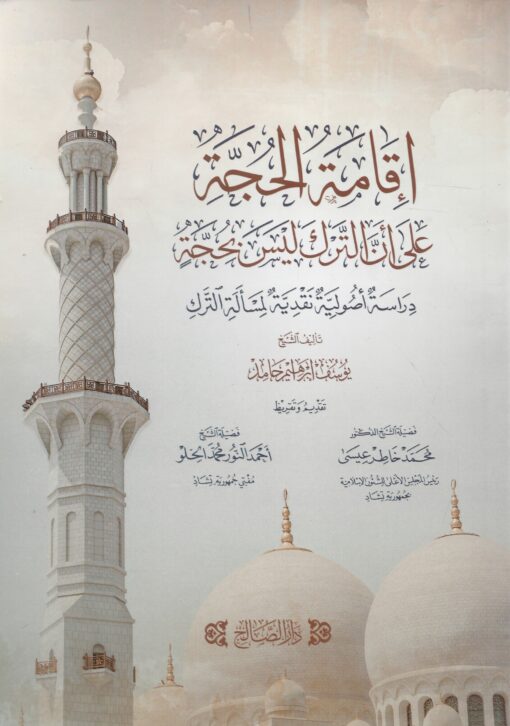 إقامة الحُجَّة
على أنَّ التَّرك ليْسَ بحُجَّةٍ
دراسةٌ أصُوليَّةٌ نقْديَّةٌ لمسْألَةِ التَّرك
تأليف الشيخ
يُوسُف إبراهيم حامد
تقديم وتقريظ
فضيلة الشيخ الدكتور
محمّد خاطر عيسى
رئيس المجلس الأعلى للشئون الإسلامية
بجمهورية تشاد
فضيلة الشيخ
أحمد النّور محمّد الحلو
مفتي جمهورية تشاد
دار الصَّالح